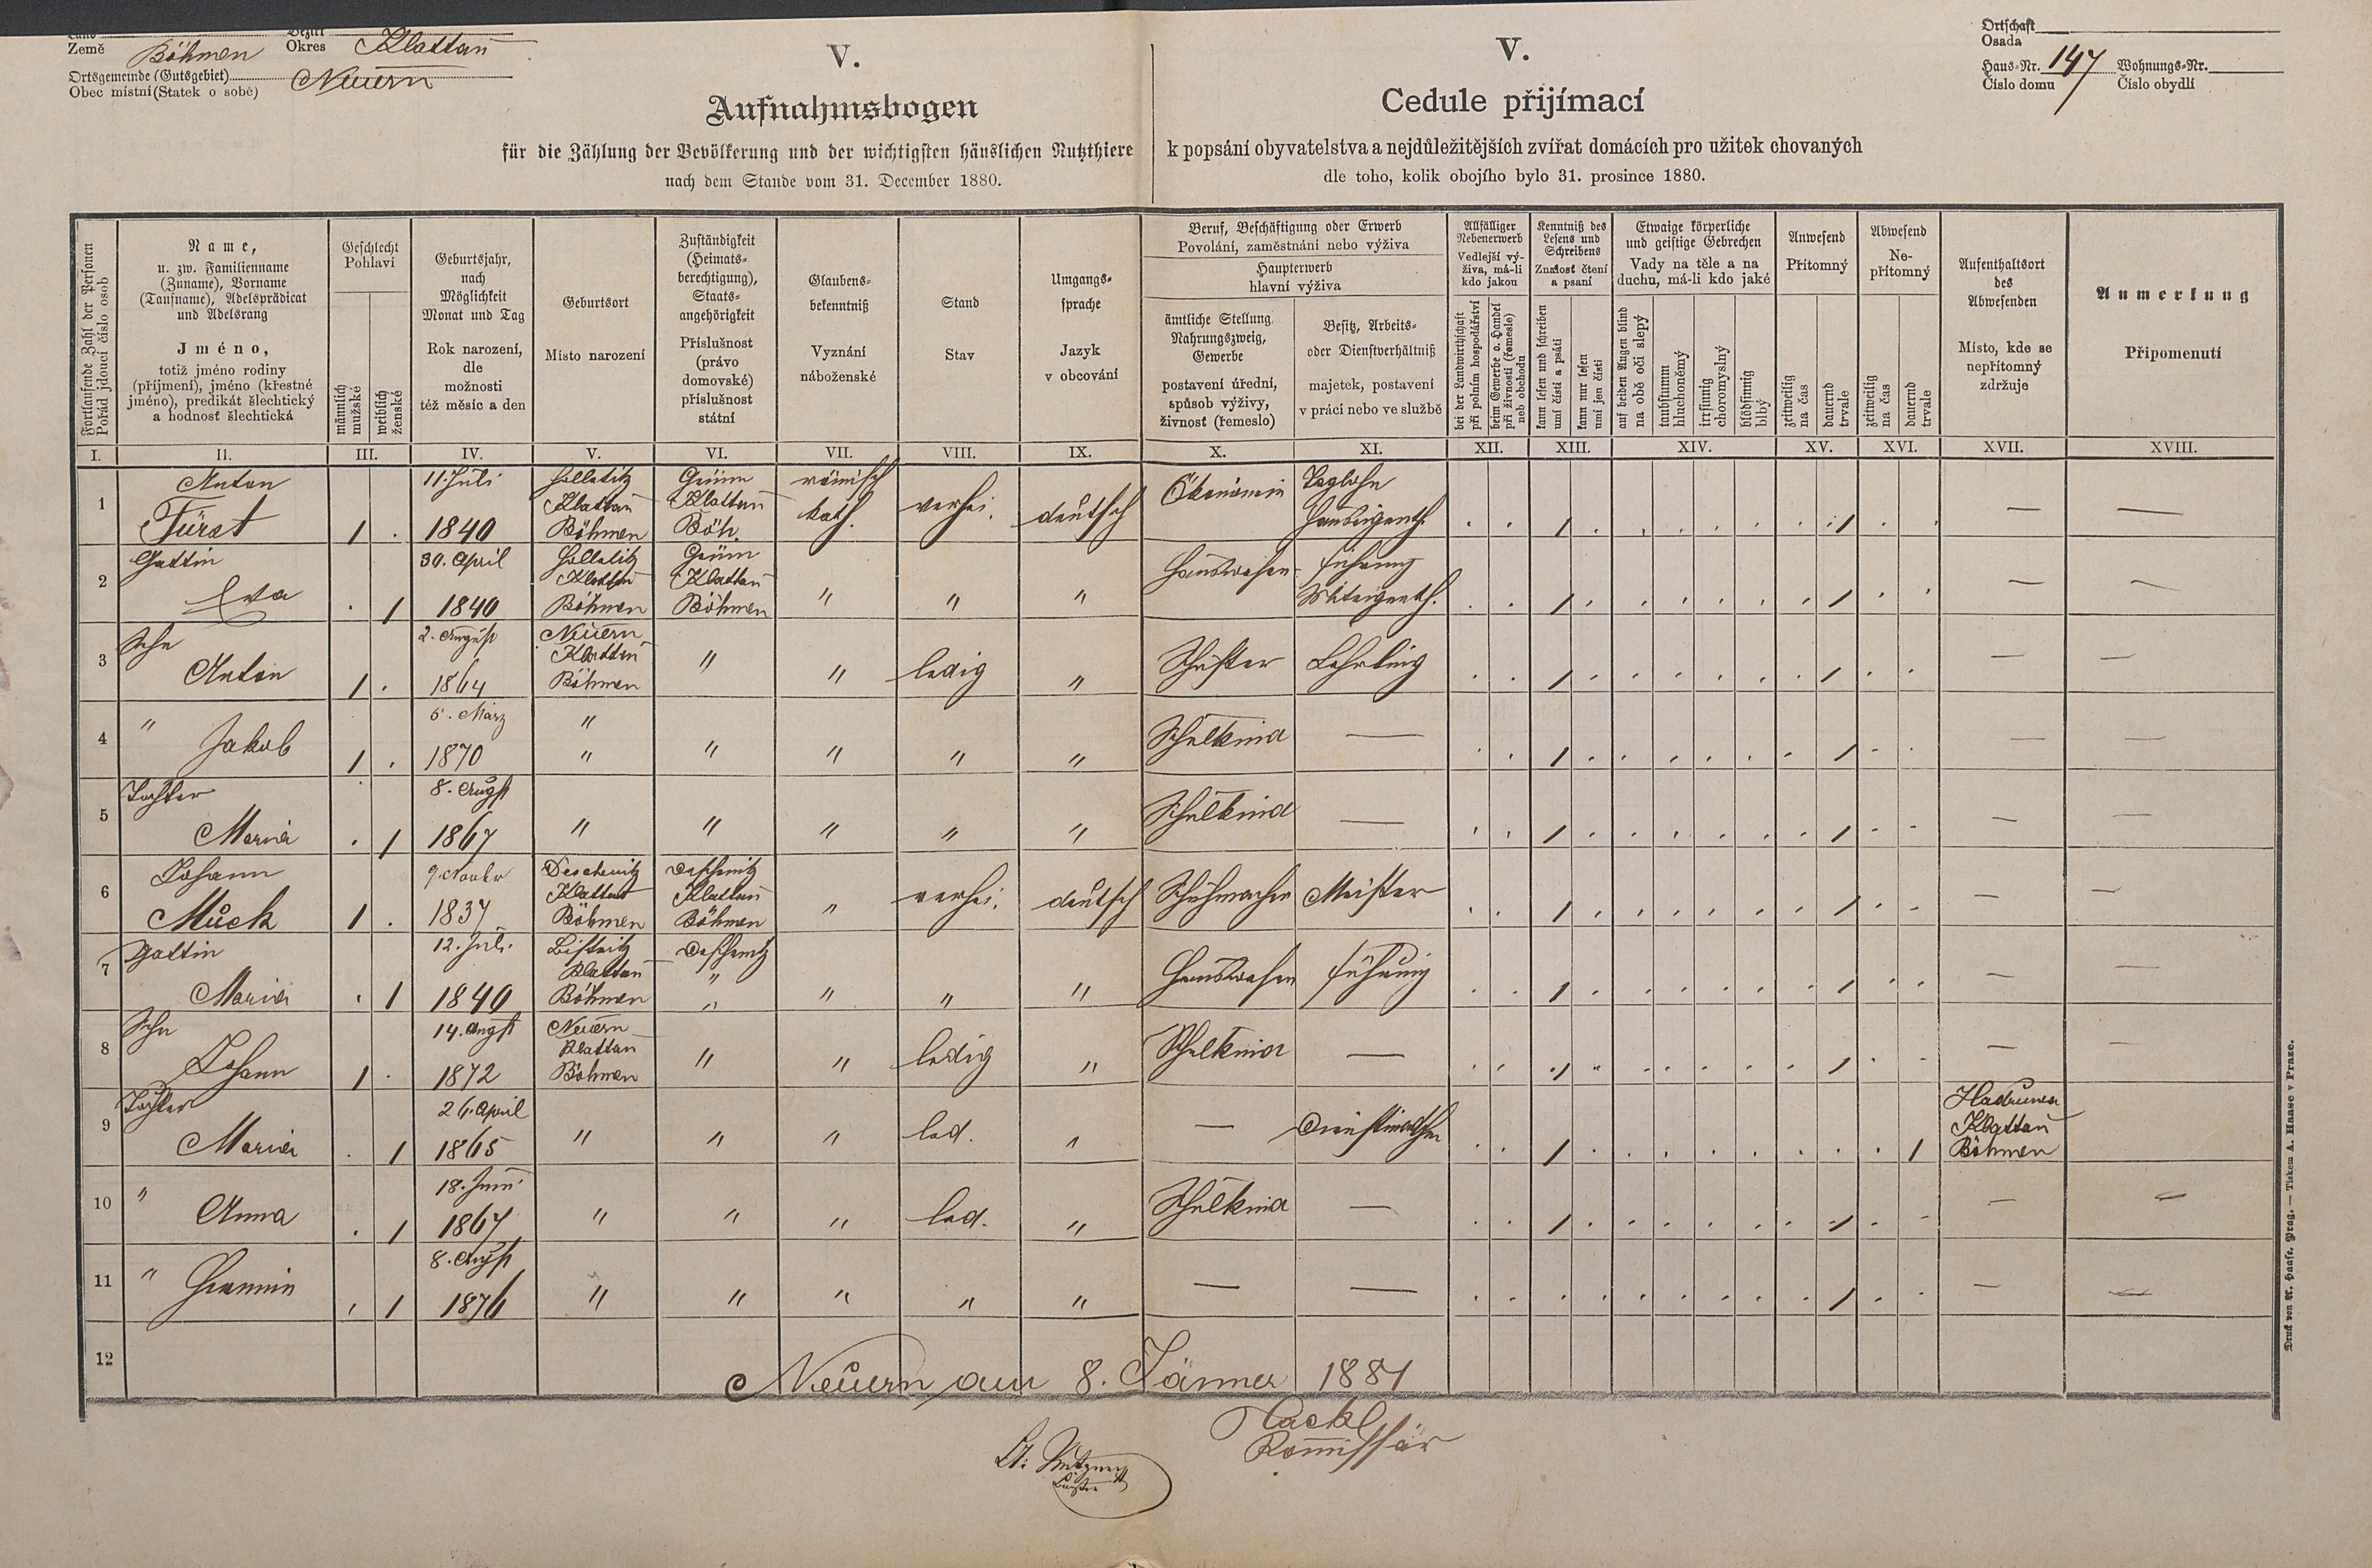 Land
Země Böhmen
Bezirk
Okres Klattau
Ortsgemeinde (Gutsgebiet)
Obec místní (Statek o sobě) Neuern
V.
Aufnahmsbogen
für die Zählung der Bevölkerung und der wichtigsten häuslichen Nutzthiere
nach dem Stande vom 31. December 1880.
V.
Cedule přijímací
k popsání obyvatelstva a nejdůležitějších zvířat domácích pro užitek chovaných
dle toho, kolik obojího bylo 31. prosince 1880.
Ortschaft
Osada
Haus-Nr. 147 Wohnungs-Nr.
Číslo domu Číslo obydlí
Fortlaufende Zahl der Personen
Pořád jdoucí číslo osob
Name,
u. zw. Familienname
(Zuname), Vorname
(Taufname), Adelsprädicat
und Adelsrang
Jméno,
totiž jméno rodiny
(příjmení), jméno (křestné
jméno), predikát šlechtický
a hodnosť šlechtická
Geschlecht
Pohlaví
männlich
mužské
weiblich
ženské
Geburtsjahr,
nach
Möglichkeit
Monat und Tag
Rok narození,
dle
možnosti
též měsíc a den
Geburtsort
Místo narození
Zuständigkeit
(Heimats-
berechtigung),
Staats-
angehörigkeit
Příslušnost
(právo
domovské)
příslušnost
státní
Glaubens-
bekenntniß
Vyznání
náboženské
Stand
Stav
Umgangs-
sprache
Jazyk
v obcování
Beruf, Beschäftigung oder Erwerb
Povolání, zaměstnání nebo výživa
Haupterwerb
hlavní výživa
ämtliche Stellung,
Nahrungszweig,
Gewerbe
postavení úřední,
spůsob výživy,
živnosť (řemeslo)
Besitz, Arbeits-
oder Dienstverhältniß
majetek, postavení
v práci nebo ve službě
Allfälliger
Nebenerwerb
Vedlejší vý-
živa, má-li
kdo jakou
bei der Landwirthschaft
při polním hospodářství
beim Gewerbe o. Handel
při živnosti (řemesle)
neb obchodu
Kenntniß des
Lesens und
Schreibens
Znalosť čtení
a psaní
kann lesen und schreiben
umí čísti a psáti
kann nur lesen
umí jen čísti
Etwaige körperliche
und geistige Gebrechen
Vady na těle a na
duchu, má-li kdo jaké
auf beiden Augen blind
na obě oči slepý
taubstumm
hluchoněmý
irrsinnig
choromyslný
blödsinnig
blbý
Anwesend
Přítomný
zeitweilig
na čas
dauernd
trvale
Abwesend
Ne-
přítomný
zeitweilig
na čas
dauernd
trvale
Aufenthaltsort
des
Abwesenden
Místo, kde se
nepřítomný
zdržuje
Anmerkung
Připomenutí
I. II. III. IV. V. VI. VII. VIII. IX. X. XI. XII. XIII. XIV. XV. XVI. XVII. XVIII.
1 Anton 11. Juli Grün römisch Ökonomie Taglohn
Klattau Klattau
Fürst 1 . 1840 Böhmen Böh. kath. verhei. deutsch Hauseigenth. . . 1 . . . . . . 1 . . — —
2 Gattin 30. April Grün Hauswesen- führung
Klattau Klattau
Eva . 1 1840 Böhmen Böhmen " " " Miteigenth. . . 1 . . . . . . 1 . . — —
3 Sohn 2. August Neuern
Klattau
Anton 1 . 1864 Böhmen " " ledig " Schuster Lehrling . . 1 . . . . . . 1 . . — —
4 " Jakob 6. März "
1 . 1870 " " " " " Schulkind — . . 1 . . . . . . 1 . . — —
5 Tochter 8. Augst
Maria . 1 1867 " " " " " Schulkind — . . 1 . . . . . . 1 . . — —
6 Johann 9. Novbr Deschenitz Deschenitz
Klattau Klattau
Muck 1 . 1837 Böhmen Böhmen " verhei. deutsch Schuhmacher Meister . . 1 . . . . . . 1 . . — —
7 Gattin 12. Juli Bistritz Deschenitz
Klattau "
Maria . 1 1840 Böhmen " " " " Hauswesen führung . . 1 . . . . . . 1 . . — —
8 Sohn 14. Augst Neuern
Klattau
Johann 1 . 1872 Böhmen " " ledig " Schulkind — . . 1 . . . . . . 1 . . — —
9 Tochter 26. April
Klattau
Maria . 1 1865 " " " led. " — . . 1 . . . . . . . . 1 Böhmen
10 " Anna 18. Juni
. 1 1867 " " " led. " Schulkind — . . 1 . . . . . . 1 . . — —
11 " 8. Augst
. 1 1876 " " " " " — — . . . . . . . . . 1 . . — —
12
Neuern am 8. Jänner 1881
Kommissär
Druck von A. Haase, Prag. — Tiskem A. Haase v Praze.